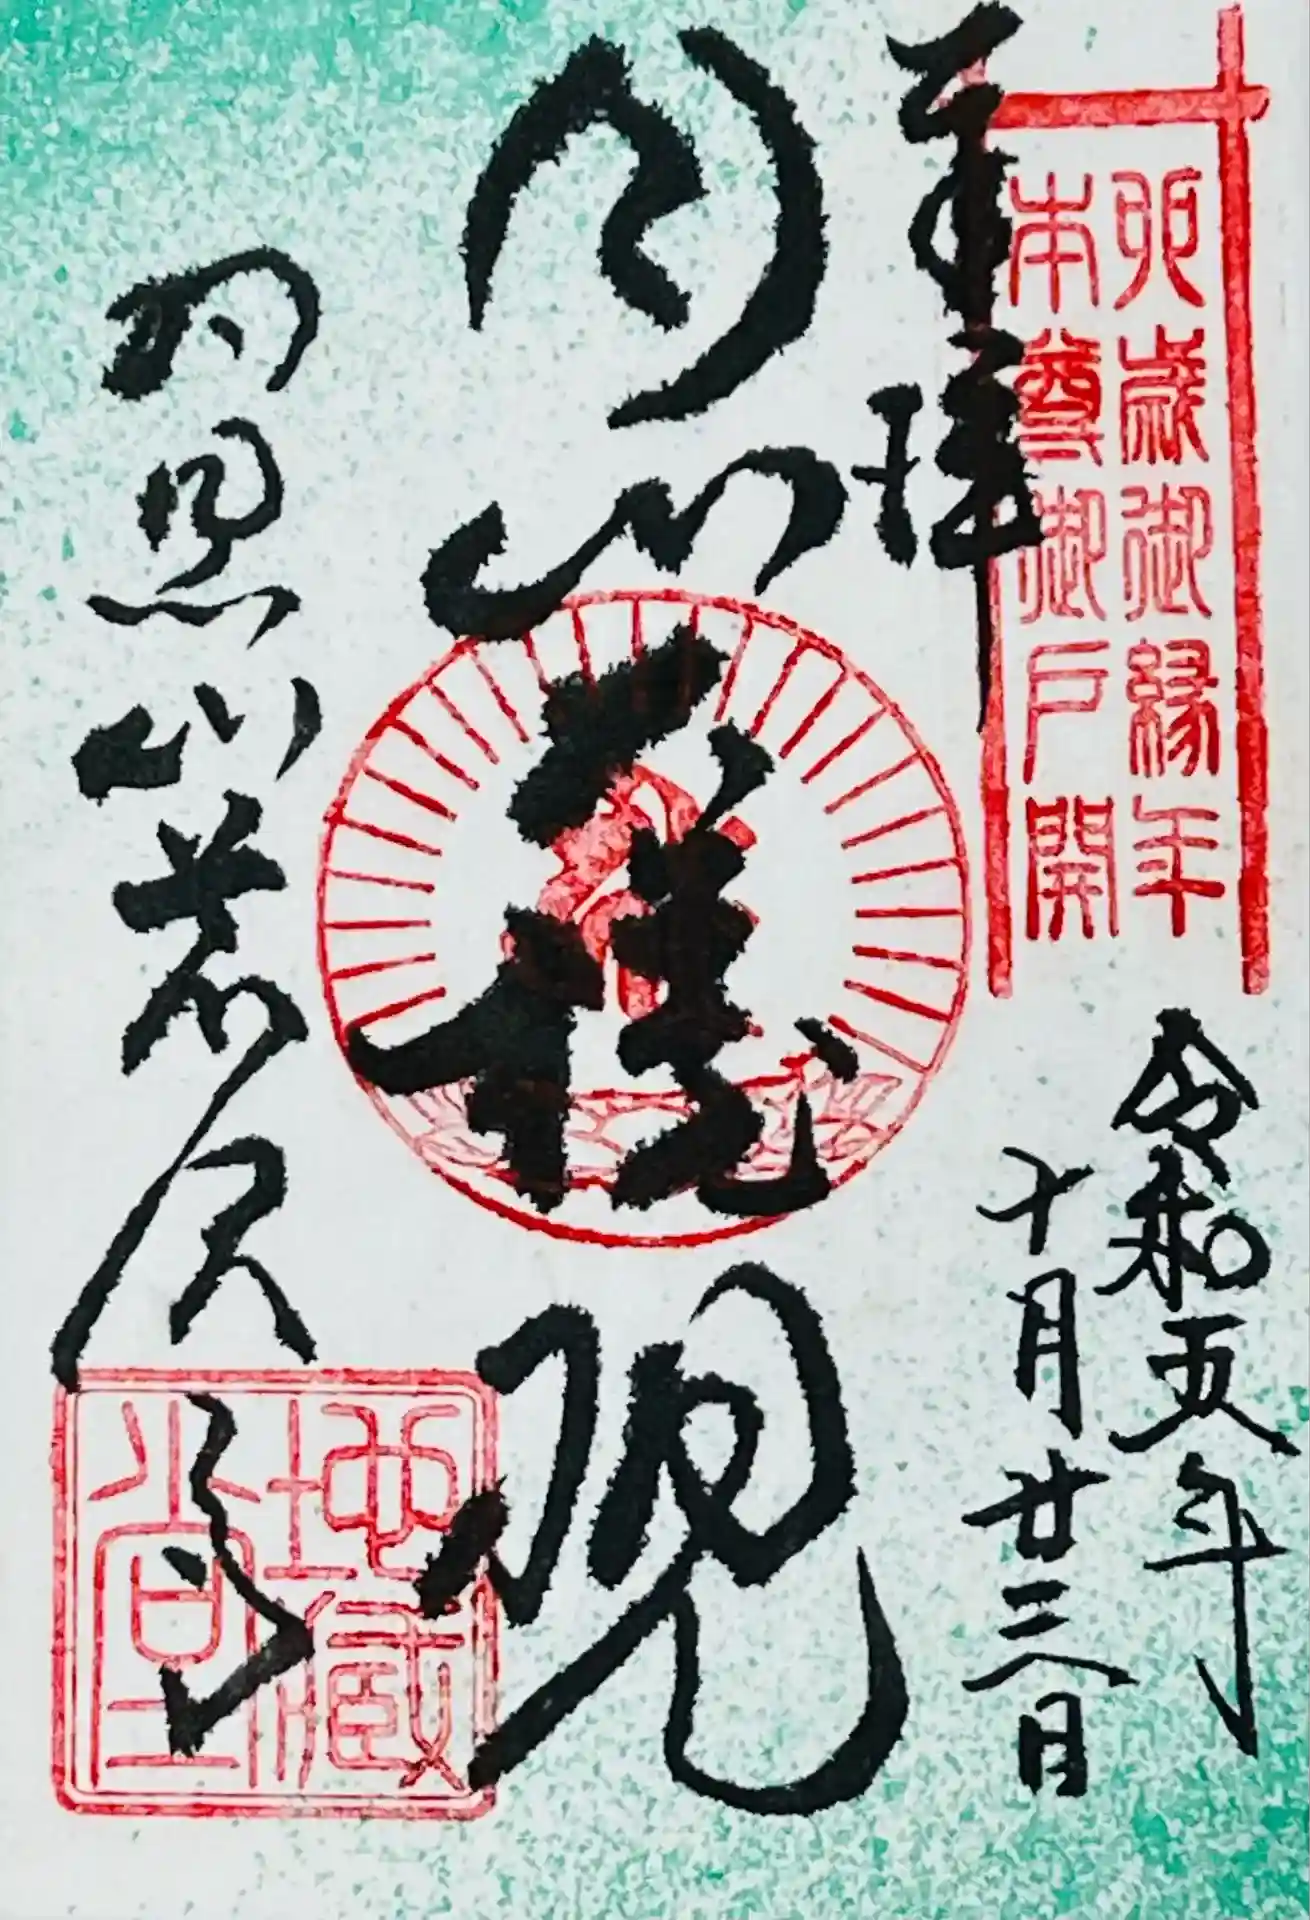 卯歳御縁年
本尊御戸開
奉拝
令和五年
十月廿三日
月山大権現
羽黒山荒沢寺
地蔵堂